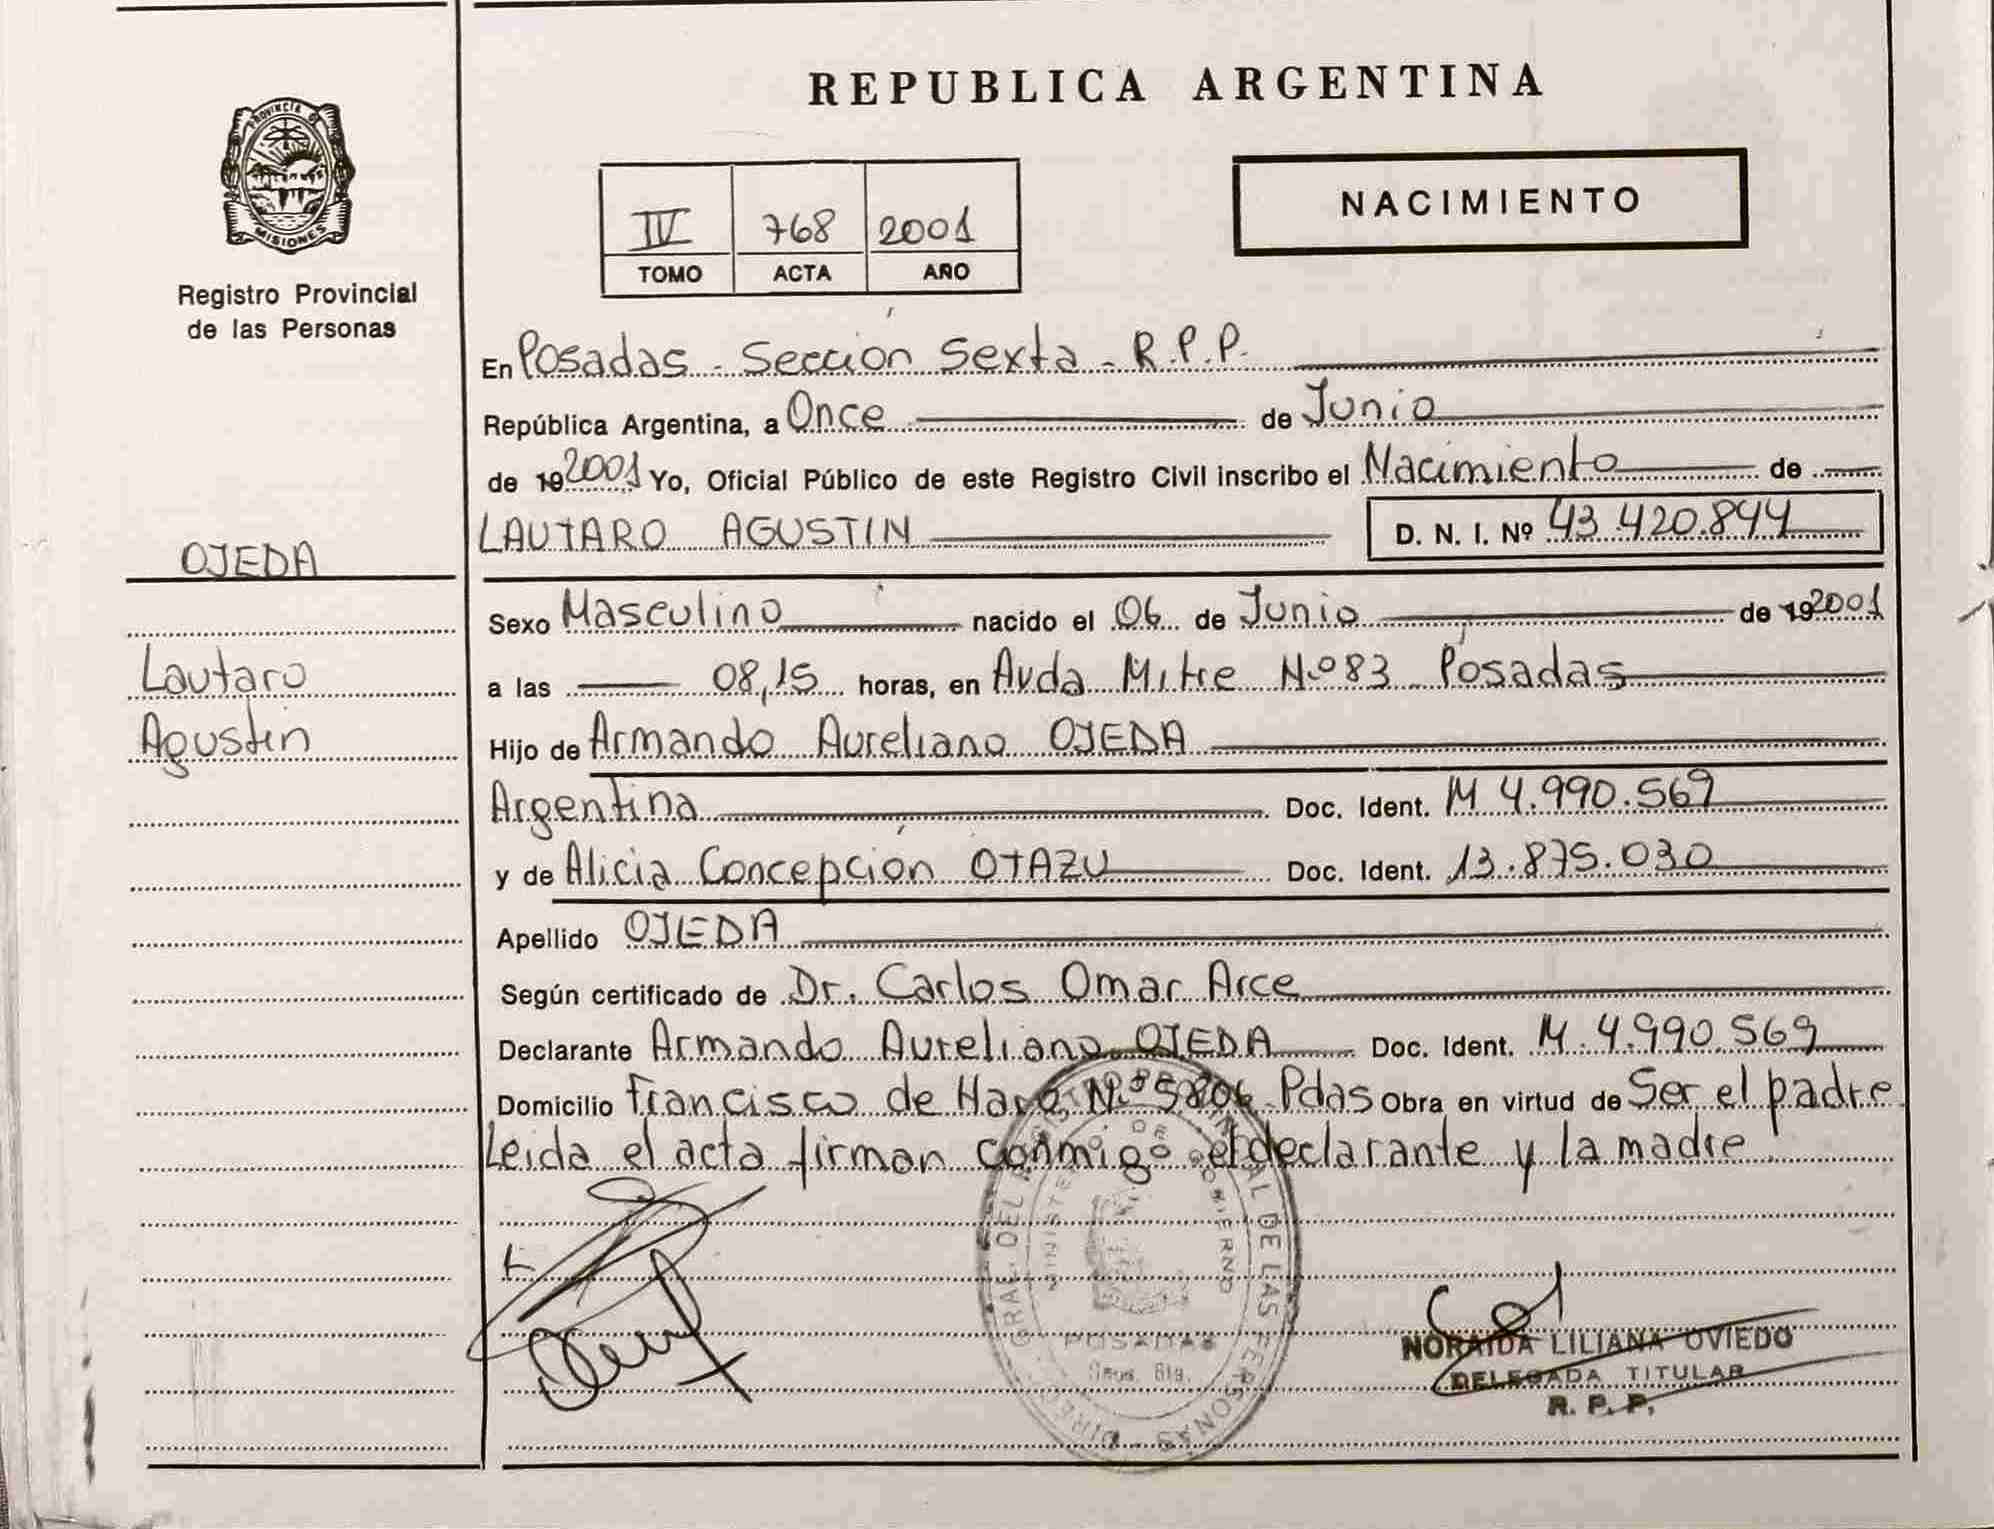 REPUBLICA ARGENTINA
PROVINCIA DE
MISIONES
Registro Provincial
de las Personas
IV 768 2001
TOMO ACTA AÑO
NACIMIENTO
En Posadas - Sección Sexta - R.P.P.
República Argentina, a Once de Junio
de 19 2001 Yo, Oficial Público de este Registro Civil inscribo el Nacimiento de
OJEDA
LAUTARO AGUSTIN D. N. I. Nº 43.420.844
Sexo Masculino nacido el 06 de Junio de 19 2001
Lautaro
a las 08,15 horas, en Avda Mitre Nº 83 Posadas
Agustin
Hijo de Armando Aureliano OJEDA
Argentina Doc. Ident. M 4.990.569
y de Alicia Concepción OTAZU Doc. Ident. 13.875.030
Apellido OJEDA
Según certificado de Dr. Carlos Omar Arce
Declarante Armando Aureliano OJEDA Doc. Ident. M. 4.990.569
Domicilio Francisco de Haro Nº 5806 Pdas Obra en virtud de Ser el padre
Leida el acta firman conmigo el declarante y la madre
GRAL. DEL DE LAS PERSONAS
POSADAS
NORAIDA LILIANA OVIEDO
DELEGADA TITULAR
R. P. P.